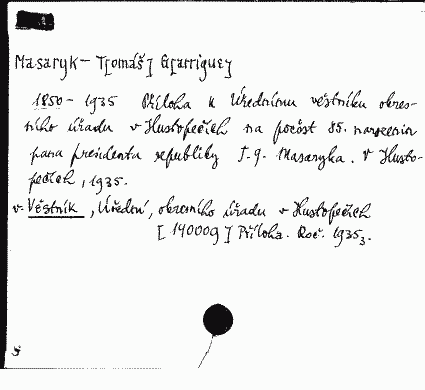 Masaryk - T[omáš] G[arrigue]
1850 - 1935 Příloha k Úřednímu věstníku okres-
ního úřadu v Hustopečích na počest 85. narozenin
pana presidenta republiky T. G. Masaryka. V Husto-
pečích, 1935.
v. Věstník, Úřední, okresního úřadu v Hustopečích
[14000g] Příloha. Roč. 1935,